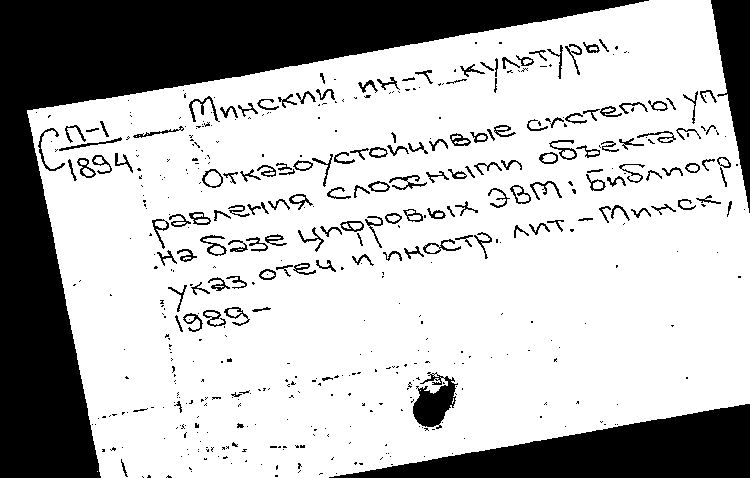 Минский ин-т культуры.
С П-1
1894.
Отказоустойчивые системы уп-
равления сложными объектами
на базе цифровых ЭВМ: Библиогр.
указ. отеч. и иностр. лит. - Минск,
1989-